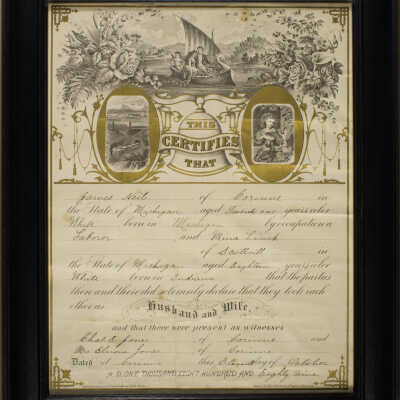 THIS
CERTIFIES
THAT
James of Corinne in
the State of Michigan aged Twenty one years color
White born in Michigan by occupation a
Laborer and Mina
of in
the State of Michigan aged Eighteen years color
White born in Indiana that the parties
then and there did solemnly declare that they took each
other as Husband and Wife
and that there were present as witnesses
Chas E. Jones of Corinne and
Mrs Jones of Corinne
Dated at Corinne this day of October
A.D. ONE THOUSAND EIGHT HUNDRED AND Eighty Nine